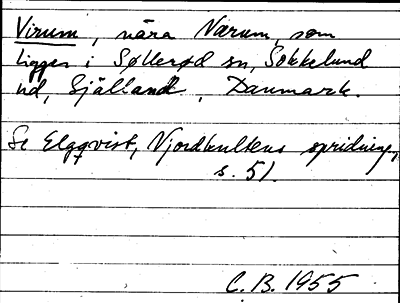 Virum, nära Nærum, som
ligger i Søllerød sn, Sokkelund
hd, Själland, Danmark.
Se Elgqvist, Njordkultens spridning,
s. 51.
C. B. 1955